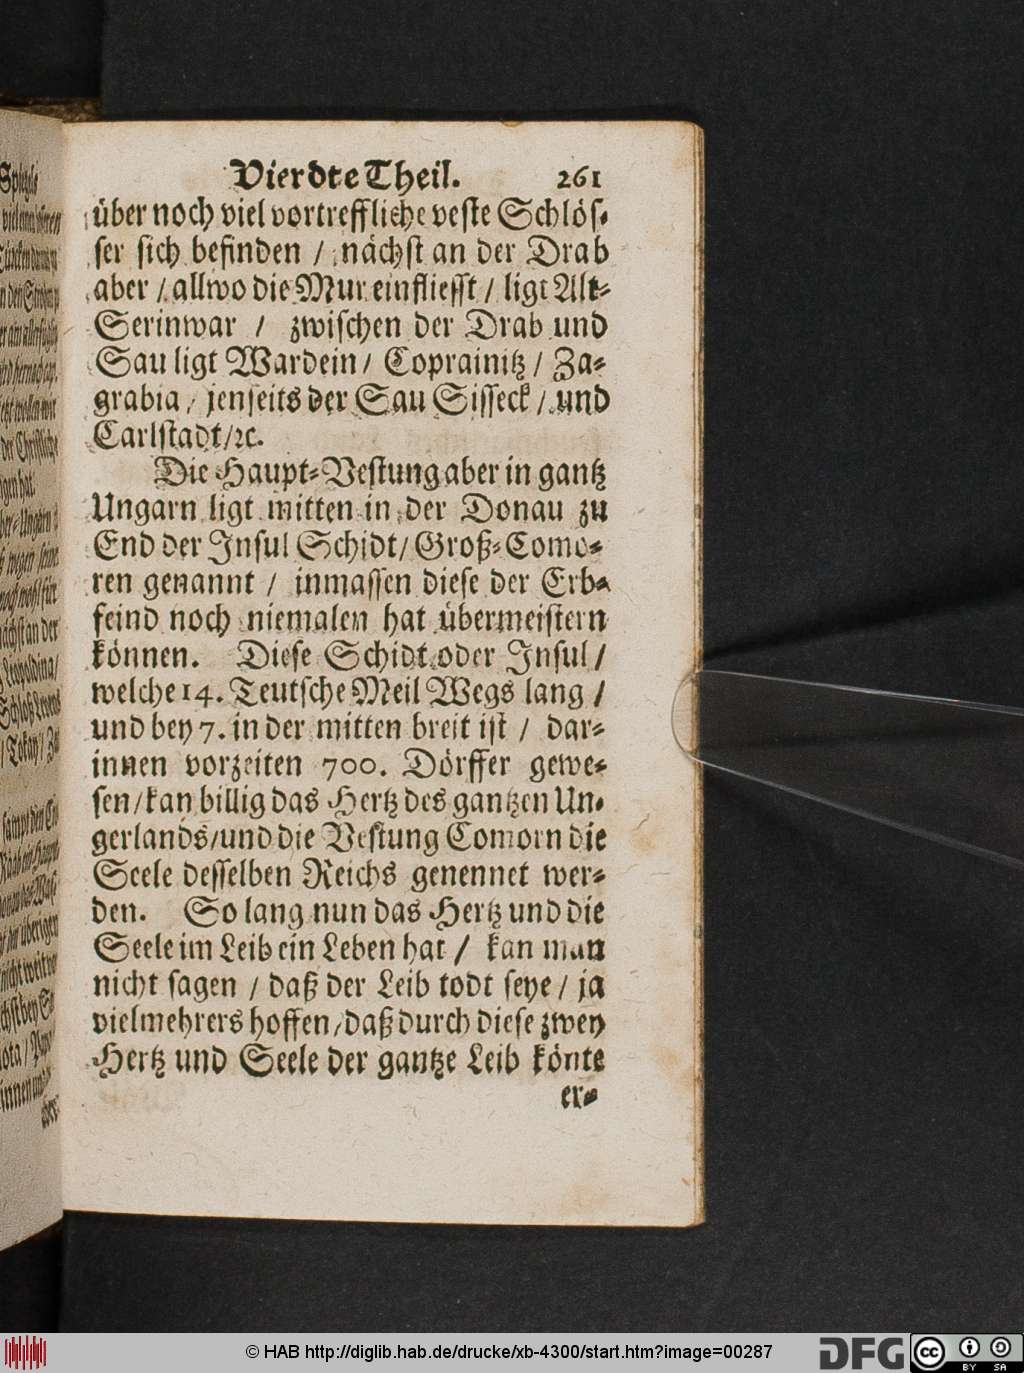 Vierdte Theil. 261
über noch viel vortreffliche veste Schlös-
ser sich befinden / nächst an der Drab
aber / allwo die Mur einfliesst / ligt Alt-
Serinwar / zwischen der Drab und
Sau ligt Wardein / Coprainitz / Za-
grabia / jenseits der Sau Sisseck / und
Carlstadt / ꝛc.
Die Haupt-Vestung aber in gantz
Ungarn ligt mitten in der Donau zu
End der Insul Schidt / Groß-Como-
ren genannt / inmassen diese der Erb-
feind noch niemalen hat übermeistern
können. Diese Schidt oder Insul /
welche 14. Teutsche Meil Wegs lang /
und bey 7. in der mitten breit ist / dar-
innen vorzeiten 700. Dörffer gewe-
sen / kan billig das Hertz des gantzen Un-
gerlands / und die Vestung Comorn die
Seele desselben Reichs genennet wer-
den. So lang nun das Hertz und die
Seele im Leib ein Leben hat / kan man
nicht sagen / daß der Leib todt seye / ja
vielmehrers hoffen / daß durch diese zwey
Hertz und Seele der gantze Leib könte
er-
© HAB http://diglib.hab.de/drucke/xb-4300/start.htm?image=00287
DFG
cc BY SA